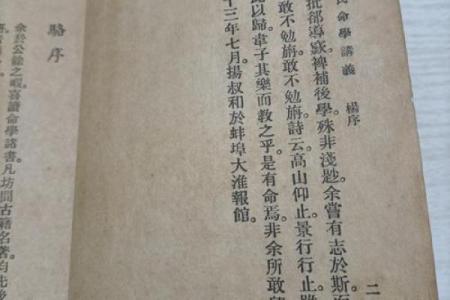 氏命學講義　楊序
二
批郤導窾。裨補後學。殊非淺尠。余嘗有志於斯。而
敢不勉旃。敢不勉旃。詩云。高山仰止。景行行止。雖
以歸。韋子其樂而教之乎。是有命焉。非余所敢
十三年七月。揚叔和於蚌埠大淮報館。
駱序
余於公餘之暇。喜讀命學諸書。凡坊間古籍名著。均先後